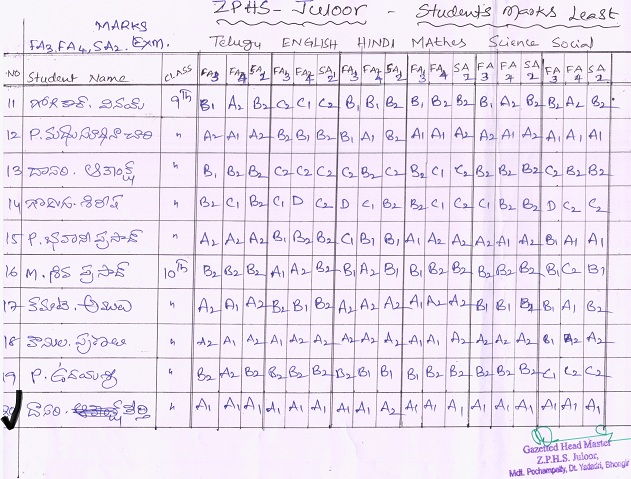 ZPHS- Juloor - Students Marks Least
MARKS
FA3, FA4, SA2. EXM. Telugu ENGLISH HINDI MAthes Science Social
NO Student Name CLASS FA3 FA4 SA2 FA3 FA4 SA2 FA3 FA4 SA2 FA3 FA4 SA2 FA3 FA4 SA2 FA3 FA4 SA2
11 వినయ్ 9th B1 A2 B2 C2 C1 C2 B1 B1 B2 B2 B2 B2 B1 A2 B2 B2 A2 B2
12 P. మధుసూధనాచారి " A2 A1 A2 B2 B1 B2 B1 A1 B2 A1 A2 A2 A2 A1 A2 A1 A1 A1
13 దాసరి. " B1 B2 B2 C2 C2 C2 C2 B2 C2 B2 C1 C2 B2 B2 B2 C2 B2 B2
14 శిరీష " B2 C1 B2 C1 D C2 D C1 B2 B2 C1 C2 C1 B2 B2 D C2 C2
15 P. భవాని ప్రసాద్ " A2 A2 A2 B1 B2 B2 C1 B1 B1 A1 A2 A2 A2 A2 A2 B1 A1 A1
16 M. శివ ప్రసాద్ 10th B2 B2 B2 A1 A2 B2 B1 A2 B1 B2 B2 B2 B2 B2 B2 B1 C2 B1
17 అముల " A2 A1 A2 B2 B1 B2 A2 A2 A2 A1 A2 A2 B1 B1 B2 B1 A1 B2
18 " A2 A1 A2 A2 A2 A2 A2 A2 A2 A1 A2 A2 A2 A2 A2 B1 A2 A2
19 P. ఉదయశ్రీ " B2 A2 B2 B2 B2 B2 B2 B1 B1 B1 B2 B2 B2 B2 B2 C1 C2 C2
20 దాసరి. కీర్తి " A1 A1 A1 A1 A1 A1 A1 A1 A2 A1 A1 A1 A1 A1 A1 A1 A1 A1
Gazetted Head Master
Z.P.H.S. Juloor,
Mdl. Pochampally, Dt. Yadadri, Bhongir